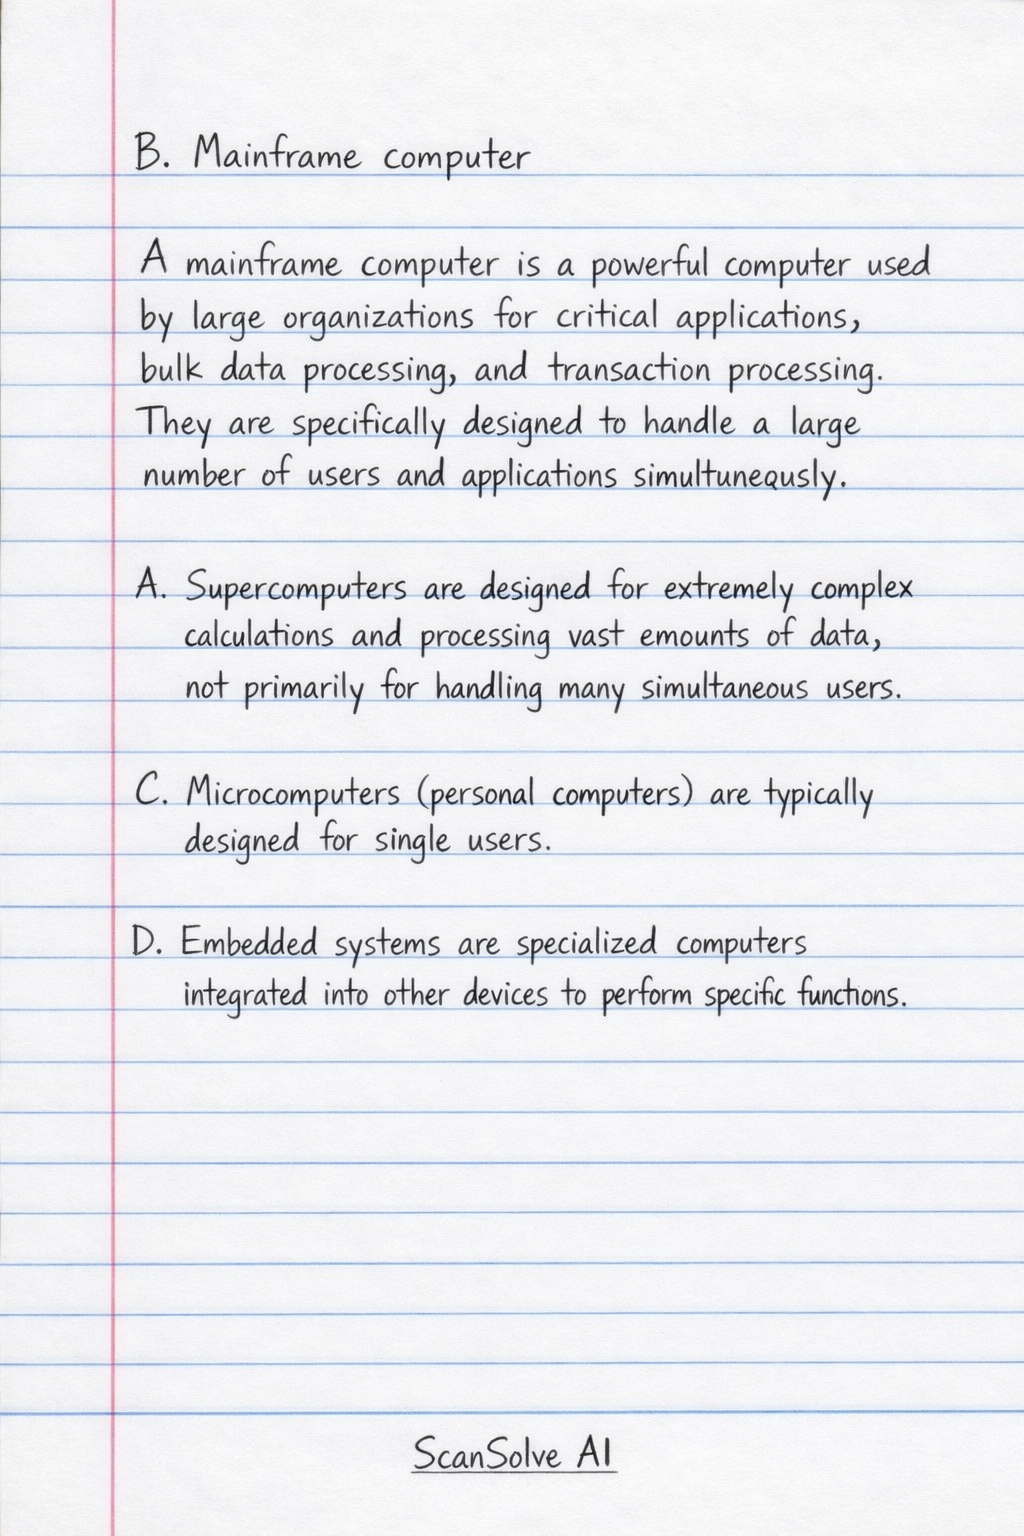 B. Mainframe computer
A mainframe computer is a powerful computer used
by large organizations for critical applications,
bulk data processing, and transaction processing.
They are specifically designed to handle a large
number of users and applications simultunequsly.
A. Supercomputers are designed for extremely complex
calculations and processing vast emounts of data,
not primarily for handling many simultaneous users.
C. Microcomputers (personal computers) are typically
designed for single users.
D. Embedded systems are specialized computers
integrated into other devices to perform specific functions.
ScanSolve AI